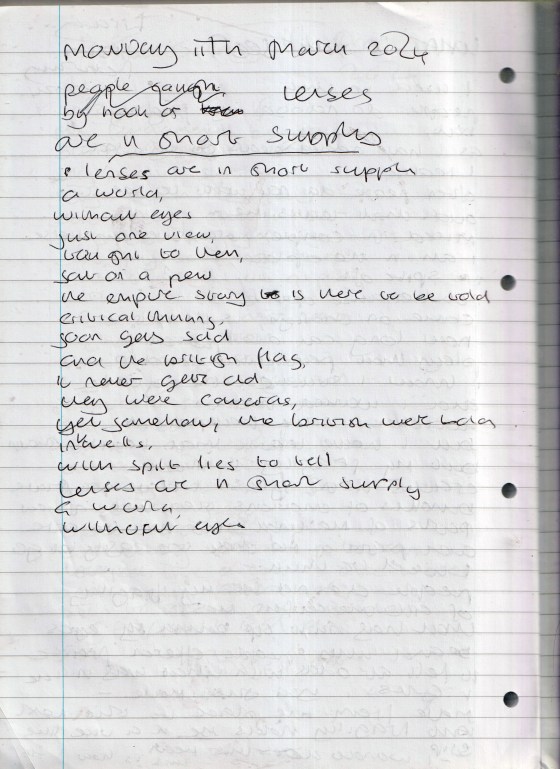 Monday 11th March 2024
people caught lenses
by hook or
are in short supply
lenses are in short supply
a world,
without eyes
just one view,
brought to them,
sat on a pew
the empire story is there to be told
critical thinking,
soon gets sold
and the british flag,
it never gets old
they were cowards,
yet somehow, the british were bold
in wells,
with spilt lies to tell
Lenses are in short supply
a world,
without eyes